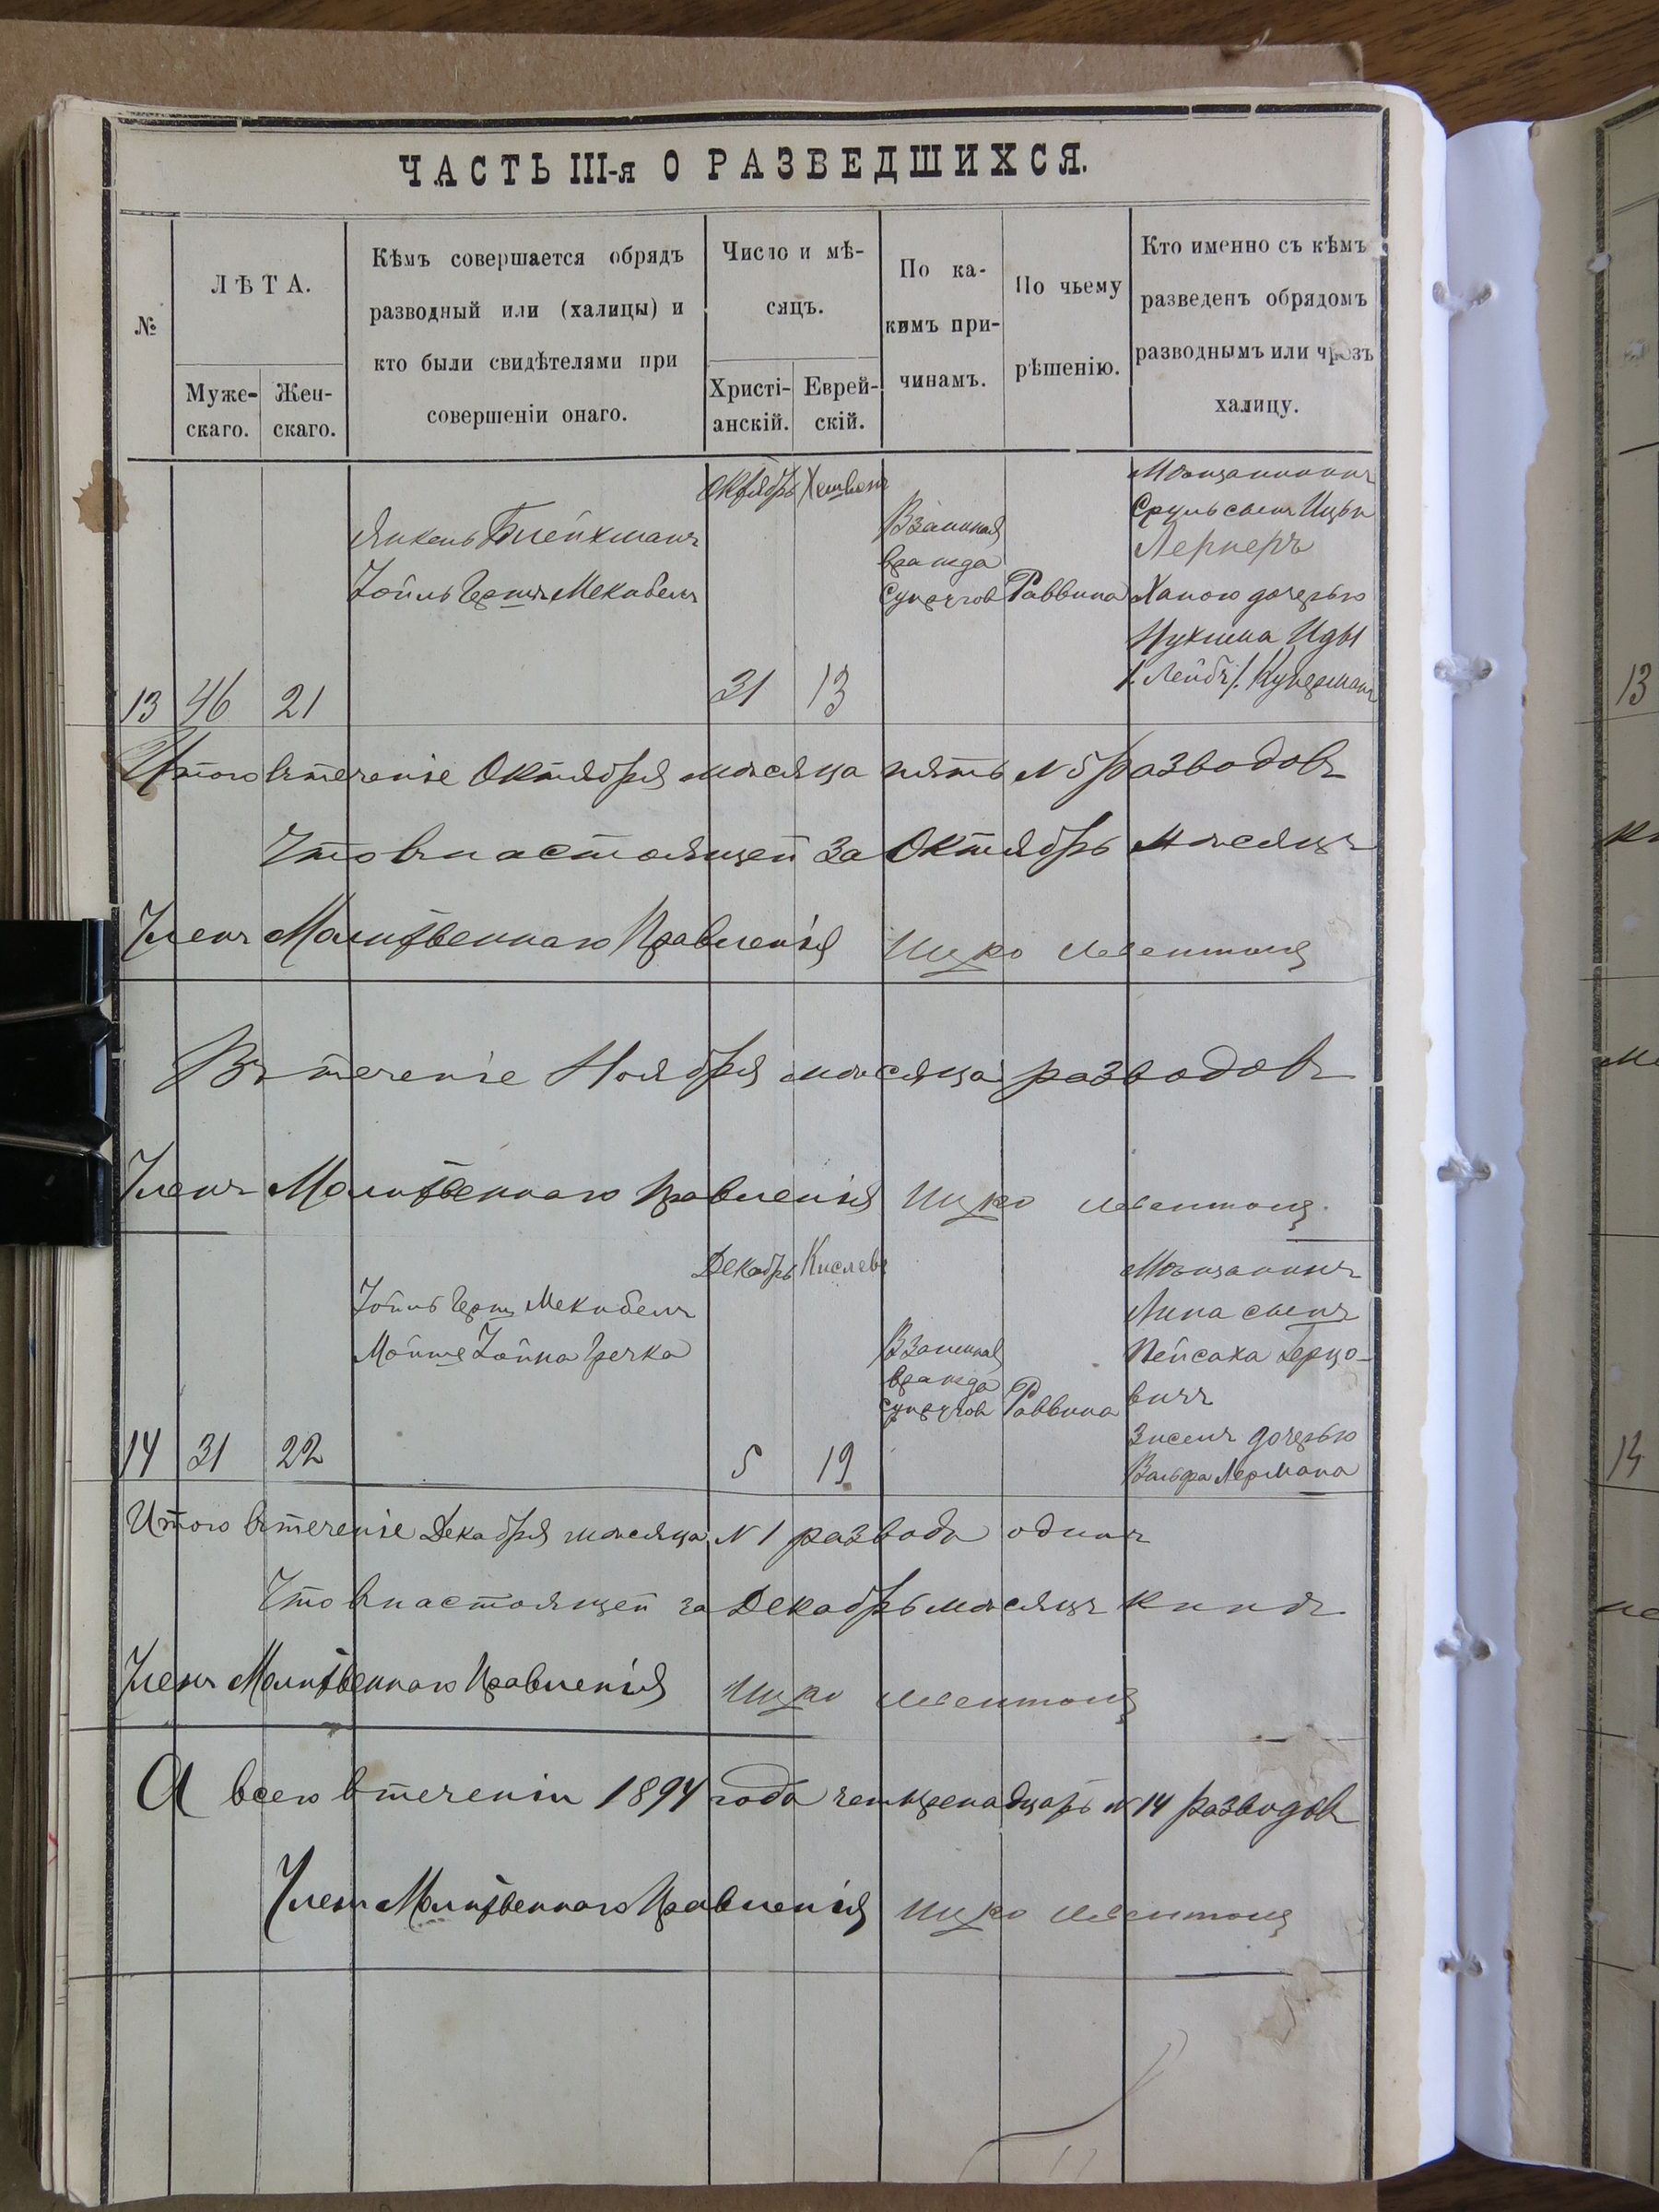 ЧАСТЬ III-я О РАЗВЕДШИХСЯ.
№
ЛѢТА.
Муже-
скаго.
Жен-
скаго.
Кѣмъ совершается обрядъ
разводный или (халицы) и
кто были свидѣтелями при
совершеніи онаго.
Число и мѣ-
сяцъ.
Христі-
анскій.
Еврей-
скій.
По ка-
кимъ при-
чинамъ.
По чьему
рѣшенію.
Кто именно съ кѣмъ
разведенъ обрядомъ
разводнымъ или чрезъ
халицу.
13
46
21
Янкель Блейхманъ
Іойль Герш Мекабель
Октябрь
31
Хешвонъ
13
Взаимная
вражда
супруговъ
Раввина
Мѣщанинъ
Сруль сынъ Ицы
Лернеръ
Ханою дочерью
Нухима Иды
/. Лейбъ /. Куперманъ
Итого втеченіе Октября мѣсяца пять № 5 разводовъ
Что в настоящей за Октябрь мѣсяцъ
Членъ Молитвеннаго Правленія Ицко
Въ теченіе Ноября мѣсяца разводовъ
Членъ Молитвеннаго Правленія Ицко
14
31
22
Іойль Герш Мекабель
Мойше Іойна Гречка
Декабрь
5
Кислевъ
19
Взаимная
вражда
супруговъ
Раввина
Мѣщанинъ
Липа сынъ
Пейсаха Герцо-
вичъ
Зисель дочерью
Вольфа Лермана
Итого втеченіе Декабря мѣсяца № 1 разводъ одинъ
Что в настоящей за Декабрь мѣсяцъ
Членъ Молитвеннаго Правленія Ицко
А всего втеченіи 1894 года четыренадцать № 14 разводовъ
Членъ Молитвеннаго Правленія Ицко
13
14